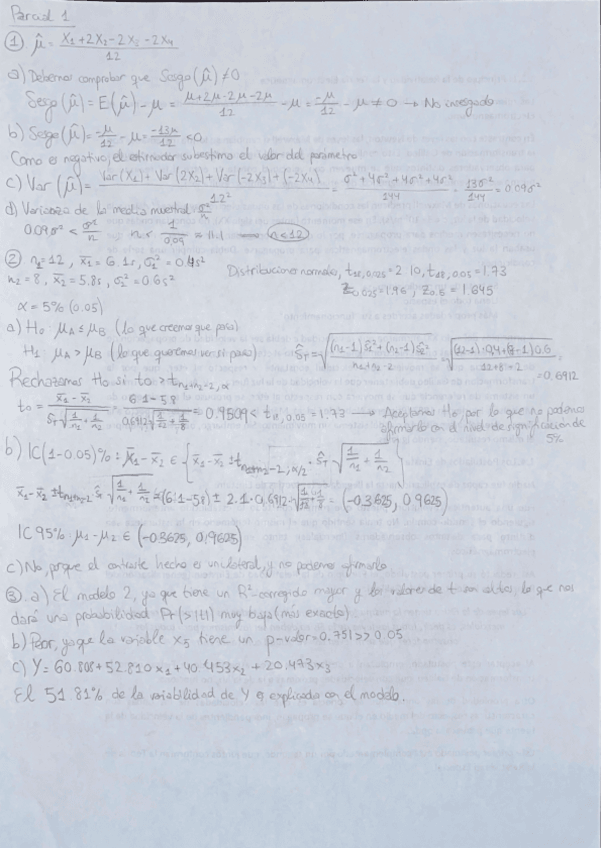 Parcial 1
① μ̂ = (X₁+2X₂-2X₃-2X₄)/12
a) Debemos comprobar que Sesgo(μ̂) ≠ 0
Sesgo(μ̂) = E(μ̂) - μ = (μ+2μ-2μ-2μ)/12 - μ = -μ/12 - μ ≠ 0 → No insesgado
b) Sesgo(μ̂) = -μ/12 - μ = -13μ/12 < 0
Como es negativo, el estimador subestima el valor del parámetro
c) Var(μ̂) = (Var(X₁) + Var(2X₂) + Var(-2X₃) + (-2X₄))/12² = (σ² + 4σ² + 4σ² + 4σ²)/144 = 13σ²/144 = 0.09σ²
d) Varianza de la media muestral σ²/n
0.09σ² < σ²/n n < 1/0.09 = 11.1 → n<12
② n₁=12, x̄₁ = 6.1s, σ₁² = 0.4s²
n₂ = 8, x̄₂ = 5.8s, σ₂² = 0.6s²
Distribuciones normales, t₁₈,₀.₀₂₅ = 2.10, t₁₈,₀.₀₅ = 1.73
Z₀.₀₂₅ = 1.96, Z₀.₀₅ = 1.645
α = 5% (0.05)
a) H₀ μA ≤ μB (lo que creemos que pasa)
H₁ μA > μB (lo que queremos ver si pasa)
ŜT = √(((n₁-1)ŝ₁² + (n₂-1)ŝ₂²)/(n₁+n₂-2)) = √(((12-1)0.4+(8-1)0.6)/(12+8-2)) = 0.6912
Rechazamos H₀ si t₀ > tn₁+n₂-2,α
t₀ = (x̄₁ - x̄₂)/(ŜT√(1/n₁ + 1/n₂)) = (6.1-5.8)/(0.6912√(1/12 + 1/8)) = 0.9509 < t₁₈,₀.₀₅ = 1.73 → Aceptamos H₀, por lo que no podemos
afirmarlo con el nivel de significación de
5%
b) IC(1-0.05)% : x̄₁ - x̄₂ ∈ { x̄₁ - x̄₂ ± tn₁+n₂-2, α/2 · ŜT √(1/n₁ + 1/n₂) }
x̄₁ - x̄₂ ± tn₁+n₂-2 ŝ √(1/n₁ + 1/n₂) = (6.1-5.8) ± 2.1·0.6912·√(1/12 + 1/8) = (-0.3625, 0.9625)
IC 95% : μ₁ - μ₂ ∈ (-0.3625, 0.9625)
c) No, porque el contraste hecho es unilateral, y no podemos afirmarlo
③ a) El modelo 2, ya que tiene un R² corregido mayor y los valores de t son altos, lo que nos
dará una probabilidad Pr(>|t|) muy baja (más exacto)
b) Peor, ya que la variable x₅ tiene un p-valor = 0.751 >> 0.05
c) Y = 60.808 + 52.810x₁ + 40.453x₂ + 20.473x₃
El 51.81% de la variabilidad de Y es explicada con el modelo.